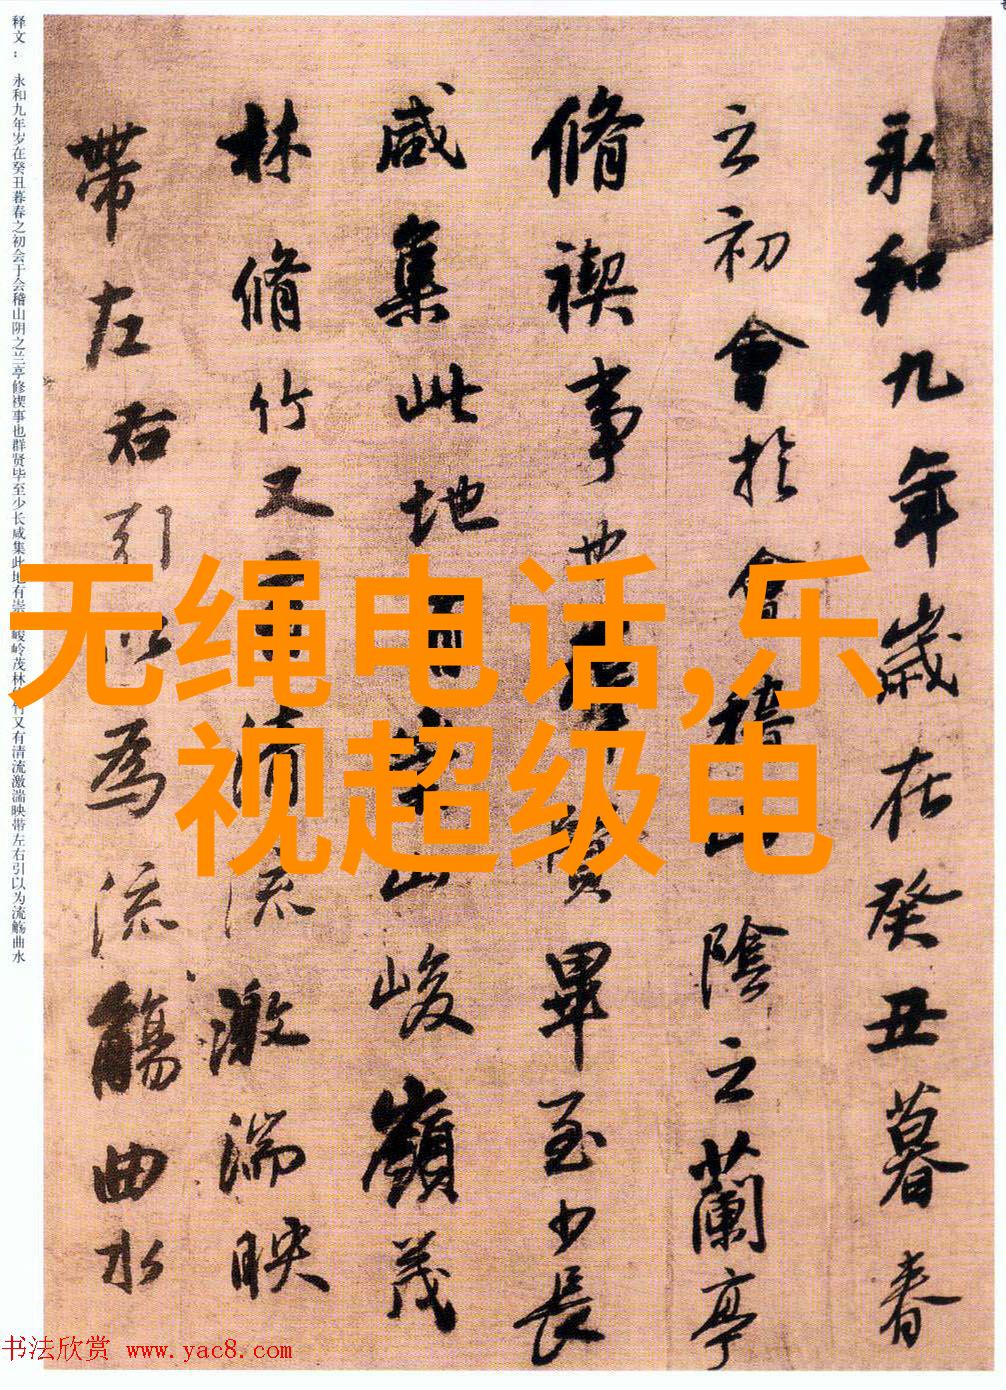 永和九年歲在癸丑暮春
之初會於會稽山陰之蘭亭
脩禊事也羣賢畢至少長
咸集此地有崇山峻嶺茂
林脩竹又有清流激湍映
帶左右引以為流觴曲水
释文： 永和九年岁在癸丑暮春之初会于会稽山阴之兰亭修禊事也群贤毕至少长咸集此地有崇山峻岭茂林修竹又有清流激湍映带左右引以为流觞曲水
无绳电话,乐
视超级电
书法欣赏 www.yac8.com